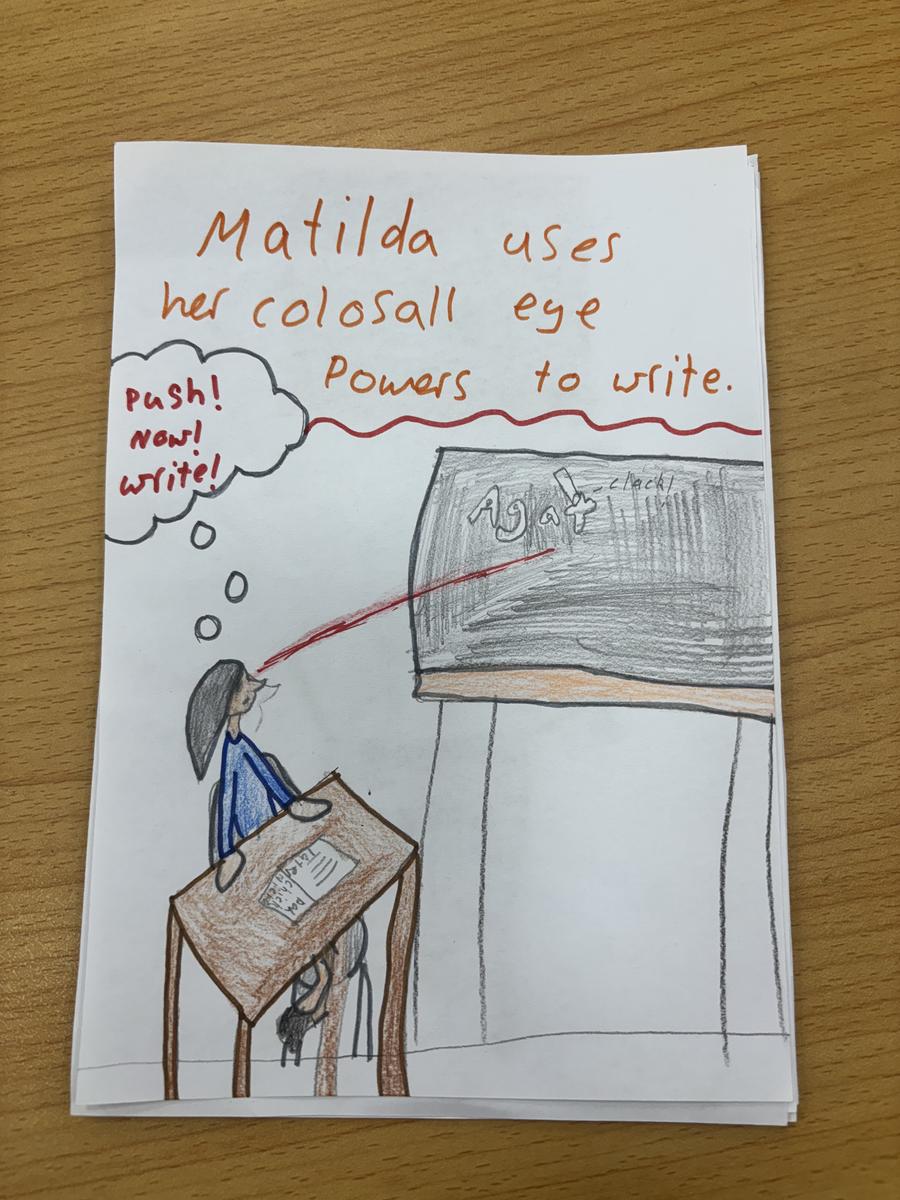 Matilda uses
her colosall eye
Powers to write.
Push!
Now!
write!
Aga
clack!